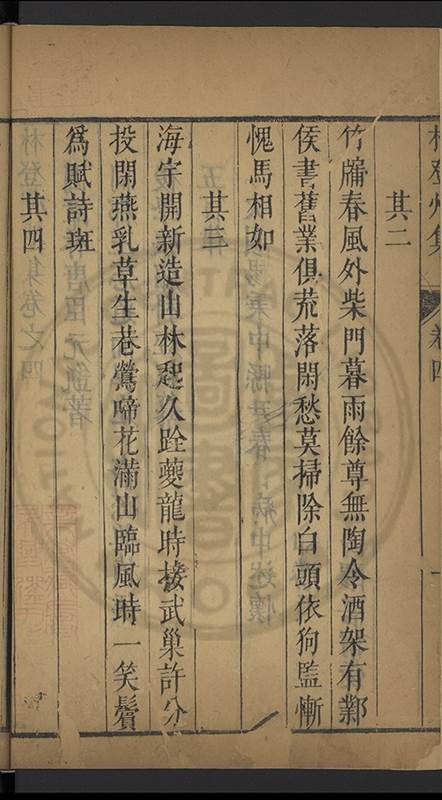 林登州集 卷四 一
其二
竹牖春風外柴門暮雨餘尊無陶令酒架有鄴
侯書舊業俱荒落閑愁莫掃除白頭依狗監慚
愧馬相如
其三
海宇開新造山林起久跧夔龍時接武巢許分
投閑燕乳草生巷鶯啼花滿山臨風時一笑鬢
為賦詩斑
其四